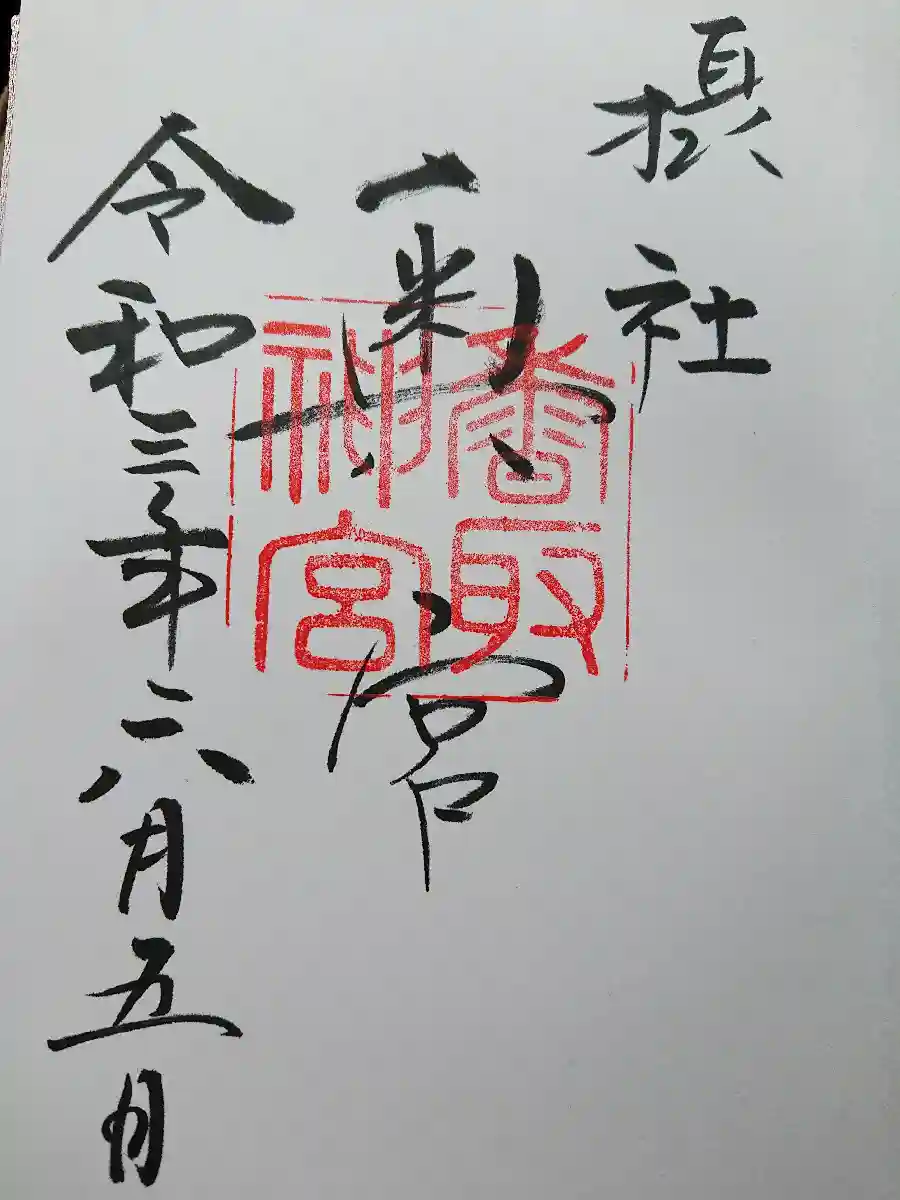 摂社
奥宮
令和三年六月五日
香取
神宮